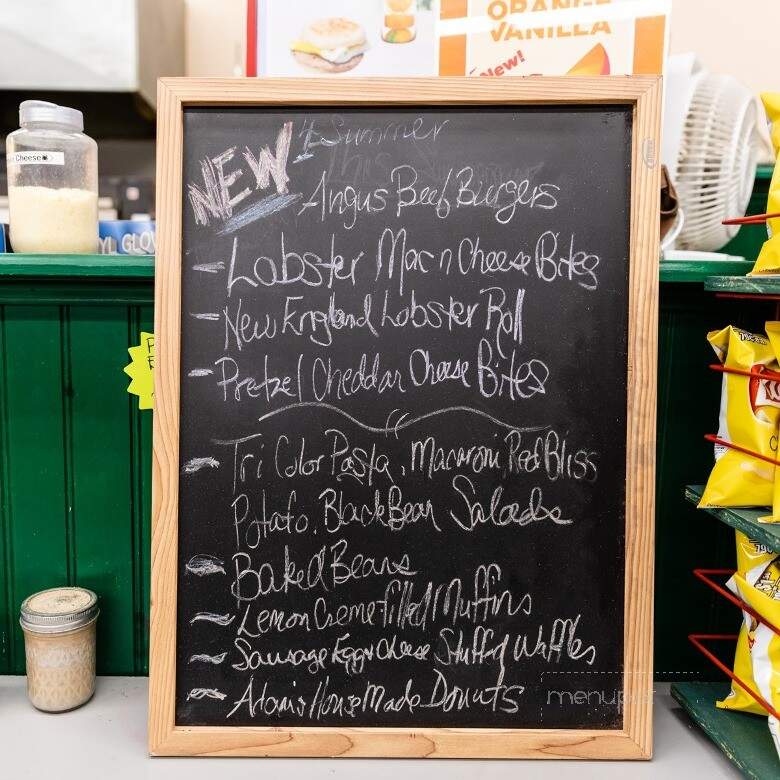 ORANGE
VANILLA
New!
Cheese
YL GLOV
NEW
4 Summer
This
Angus Beef Burgers
- Lobster Mac n Cheese Bites
- New England Lobster Roll
- Pretzel Cheddar Cheese Bites
- Tri Color Pasta, Macaroni, Red Bliss
Potato, Black Bean Salads
- Baked Beans
- Lemon Creme-filled Muffins
- Sausage Egg & Cheese Stuffed Waffles
- Adam's House Made Donuts
menupix